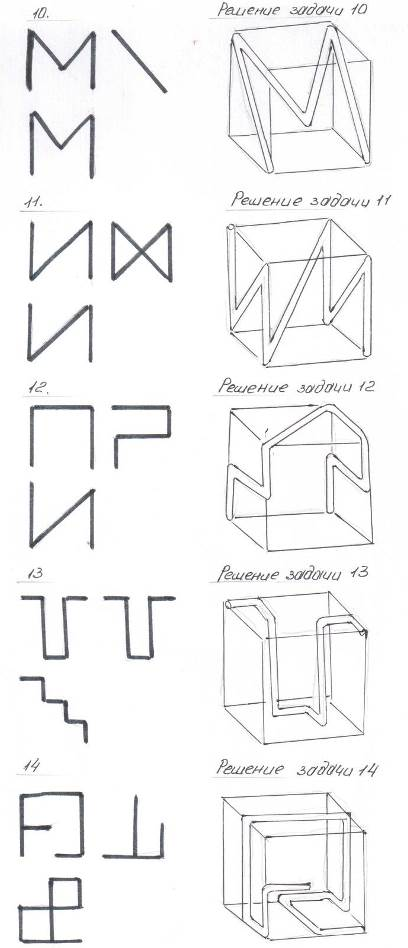 10.
Решение задачи 10
11.
Решение задачи 11
12.
Решение задачи 12
13
Решение задачи 13
14
Решение задачи 14